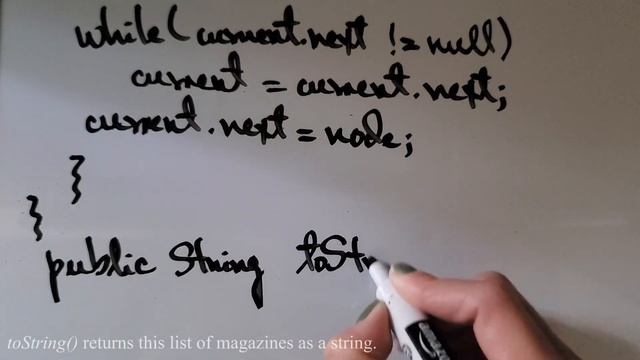 while(current.next != null)
current = current.next;
current.next = node;
}
}
public String toSt
toString() returns this list of magazines as a string.